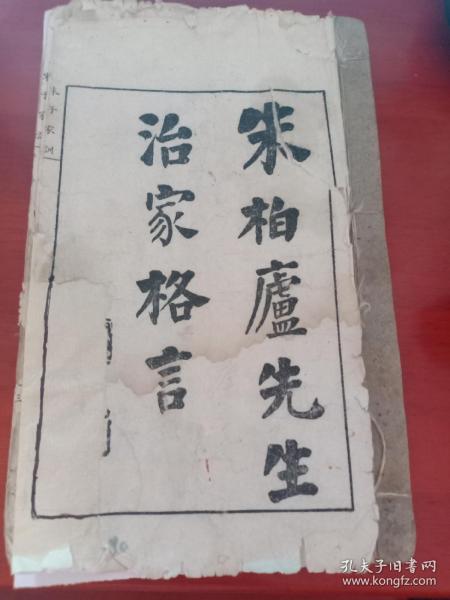 朱柏廬先生
治家格言
朱子家訓
孔夫子旧书网
www.kongfz.com